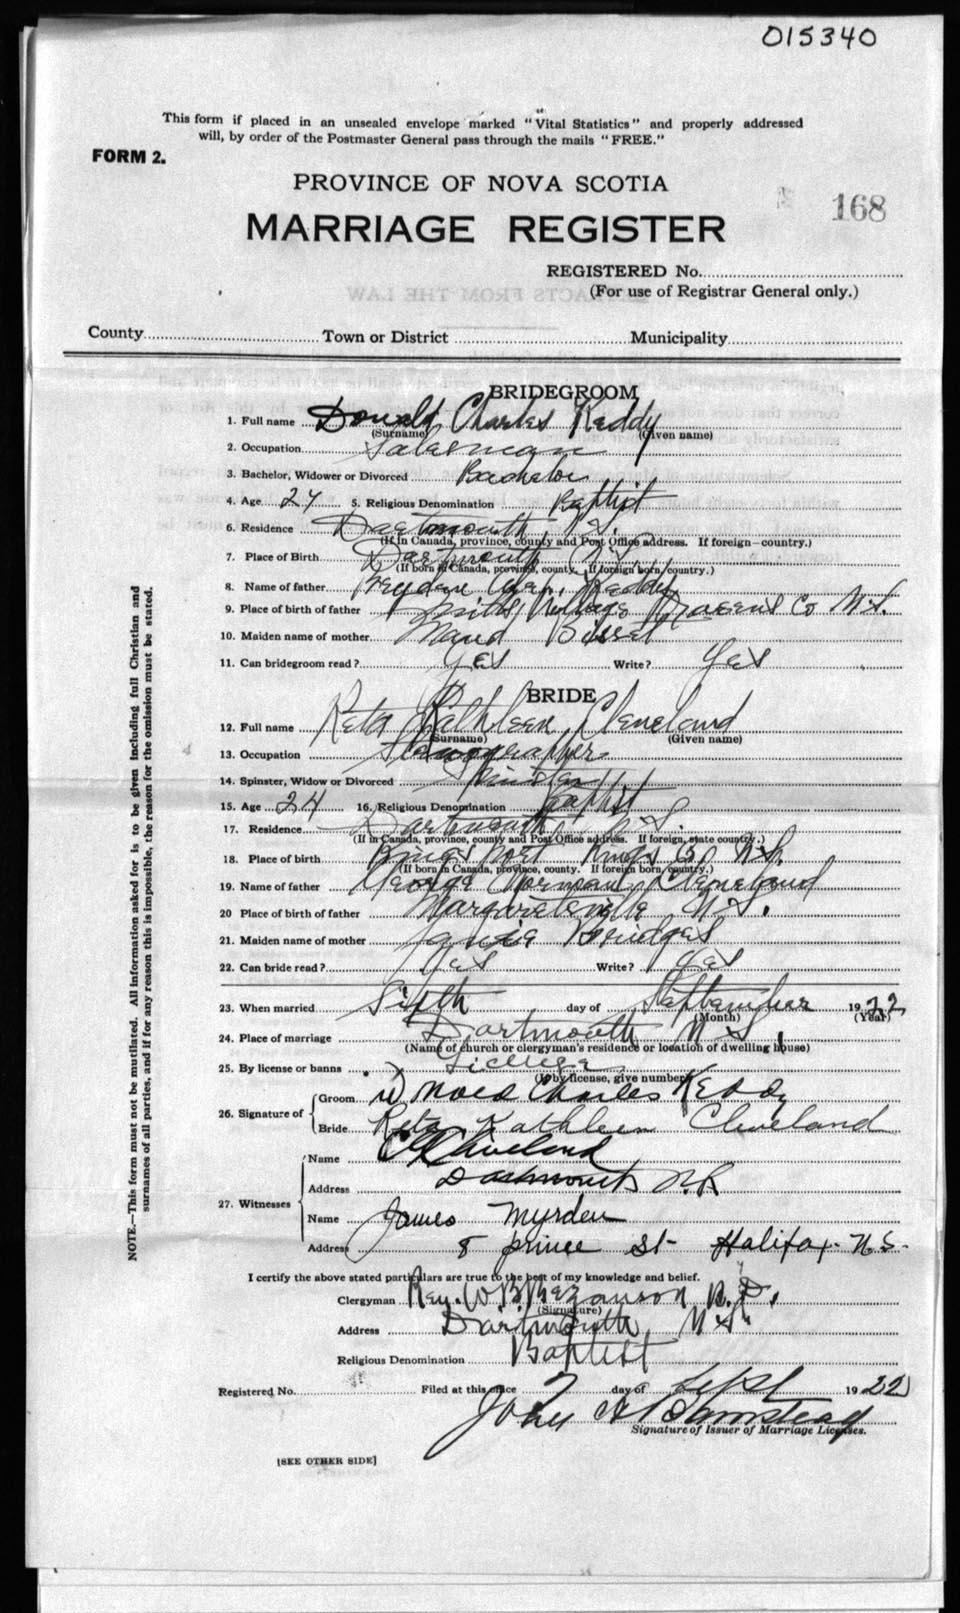 015340
This form if placed in an unsealed envelope marked "Vital Statistics" and properly addressed
will, by order of the Postmaster General pass through the mails "FREE."
FORM 2.
PROVINCE OF NOVA SCOTIA
168
MARRIAGE REGISTER
REGISTERED No.
(For use of Registrar General only.)
County Town or District Municipality
BRIDEGROOM
1. Full name Donald Charles Keddy
(Surname) (Given name)
2. Occupation Salesman
3. Bachelor, Widower or Divorced Bachelor
4. Age 27 5. Religious Denomination Baptist
6. Residence Dartmouth, N.S.
(If in Canada, province, county and Post Office address. If foreign—country.)
7. Place of Birth Dartmouth N.S.
(If born in Canada, province, county. If foreign born, country.)
8. Name of father Keddy
9. Place of birth of father Village Queens Co N.S.
10. Maiden name of mother Maud Bissett
11. Can bridegroom read? Yes Write? Yes
BRIDE
12. Full name Reta Kathleen Cleveland
(Surname) (Given name)
13. Occupation Stenographer
14. Spinster, Widow or Divorced Spinster
15. Age 24 16. Religious Denomination Baptist
17. Residence Dartmouth N.S.
(If in Canada, province, county and Post Office address. If foreign, state country.)
18. Place of birth Kings Port Kings Co N.S.
(If born in Canada, province, county. If foreign born, country.)
19. Name of father George Norman Cleveland
20 Place of birth of father Margaretsville N.S.
21. Maiden name of mother Bridges
22. Can bride read? Yes Write? Yes
23. When married Sixth day of September 1922
(Month) (Year)
24. Place of marriage Dartmouth N.S.
(Name of church or clergyman's residence or location of dwelling house)
25. By license or banns License
(If by license, give number)
26. Signature of Groom Donald Charles Keddy
Bride Reta Kathleen Cleveland
27. Witnesses Name Cleveland
Address Dartmouth N.S.
Name James Myrden
Address 8 Prince St Halifax. N.S.
I certify the above stated particulars are true to the best of my knowledge and belief.
Clergyman Rev. W. B. Bezanson B.D.
(Signature)
Address Dartmouth N.S.
Religious Denomination Baptist
Registered No. Filed at this office 7 day of Sept 1922
John A Bamstead
Signature of Issuer of Marriage Licenses.
[SEE OTHER SIDE]
NOTE.—This form must not be mutilated. All information asked for is to be given including full Christian and
surnames of all parties, and if for any reason this is impossible, the reason for the omission must be stated.